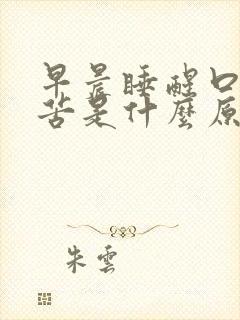 早晨睡醒口
苦是什麼原
朱雲